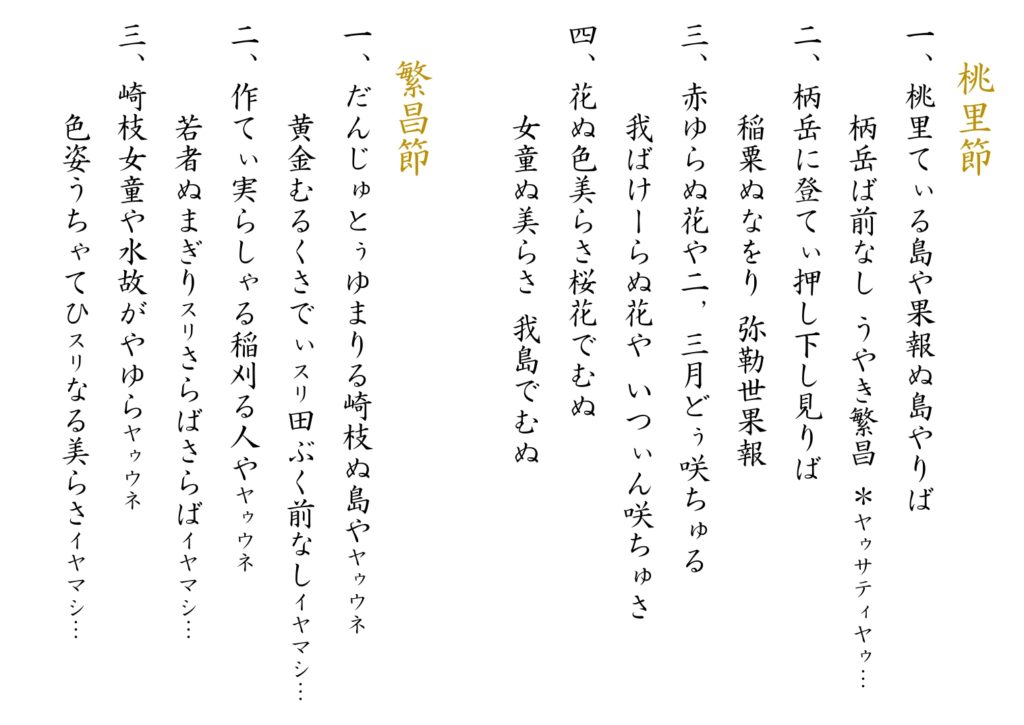 桃里節
一、桃里てぃる島や果報ぬ島やりば
柄岳ば前なし うやき繁昌 ＊ヤゥサティヤゥ…
二、柄岳に登てぃ押し下し見りば
稲粟ぬなをり 弥勒世果報
三、赤ゆらぬ花や二，三月どぅ咲ちゅる
我ばけーらぬ花や いつぃん咲ちゅさ
四、花ぬ色美らさ桜花でむぬ
女童ぬ美らさ 我島でむぬ
繁昌節
一、だんじゅとぅゆまりる崎枝ぬ島やヤゥウネ
黄金むるくさでぃスリ田ぶく前なしイヤマシ…
二、作てぃ実らしゃる稲刈る人やヤゥウネ
若者ぬまぎりスリさらばさらばイヤマシ…
三、崎枝女童や水故がやゆらヤゥウネ
色姿うちゃてひスリなる美らさイヤマシ…